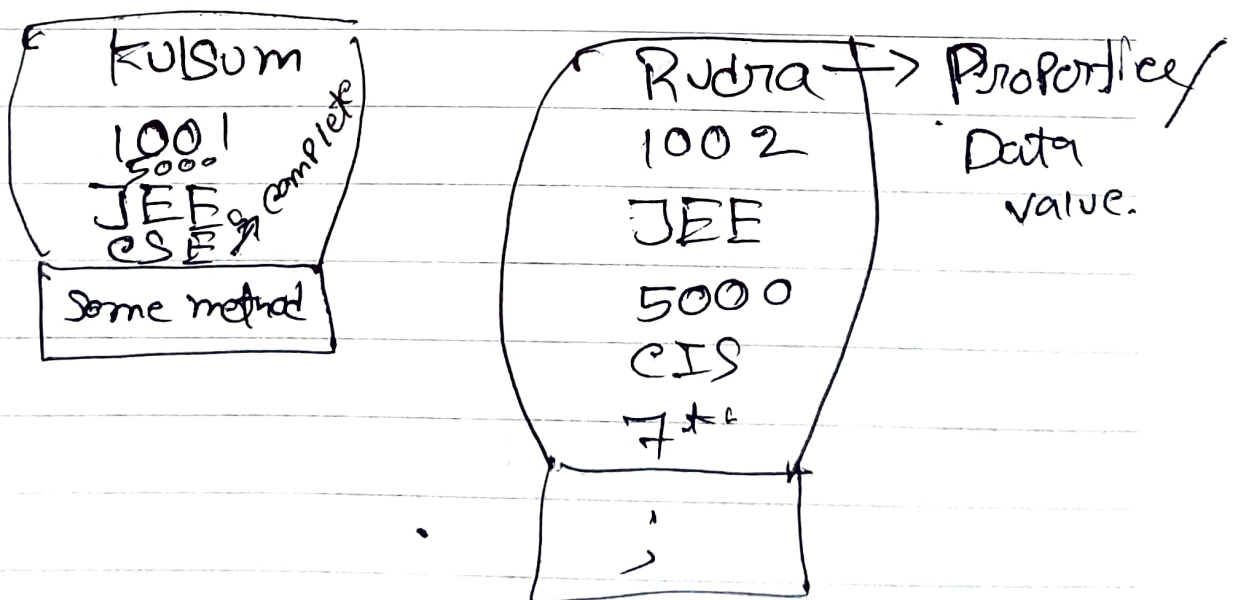 Kulsum
1001
5000
JEE
CSE
complete
Some method
Rudra → Properties/
Data
value.
1002
JEE
5000
CIS
7th